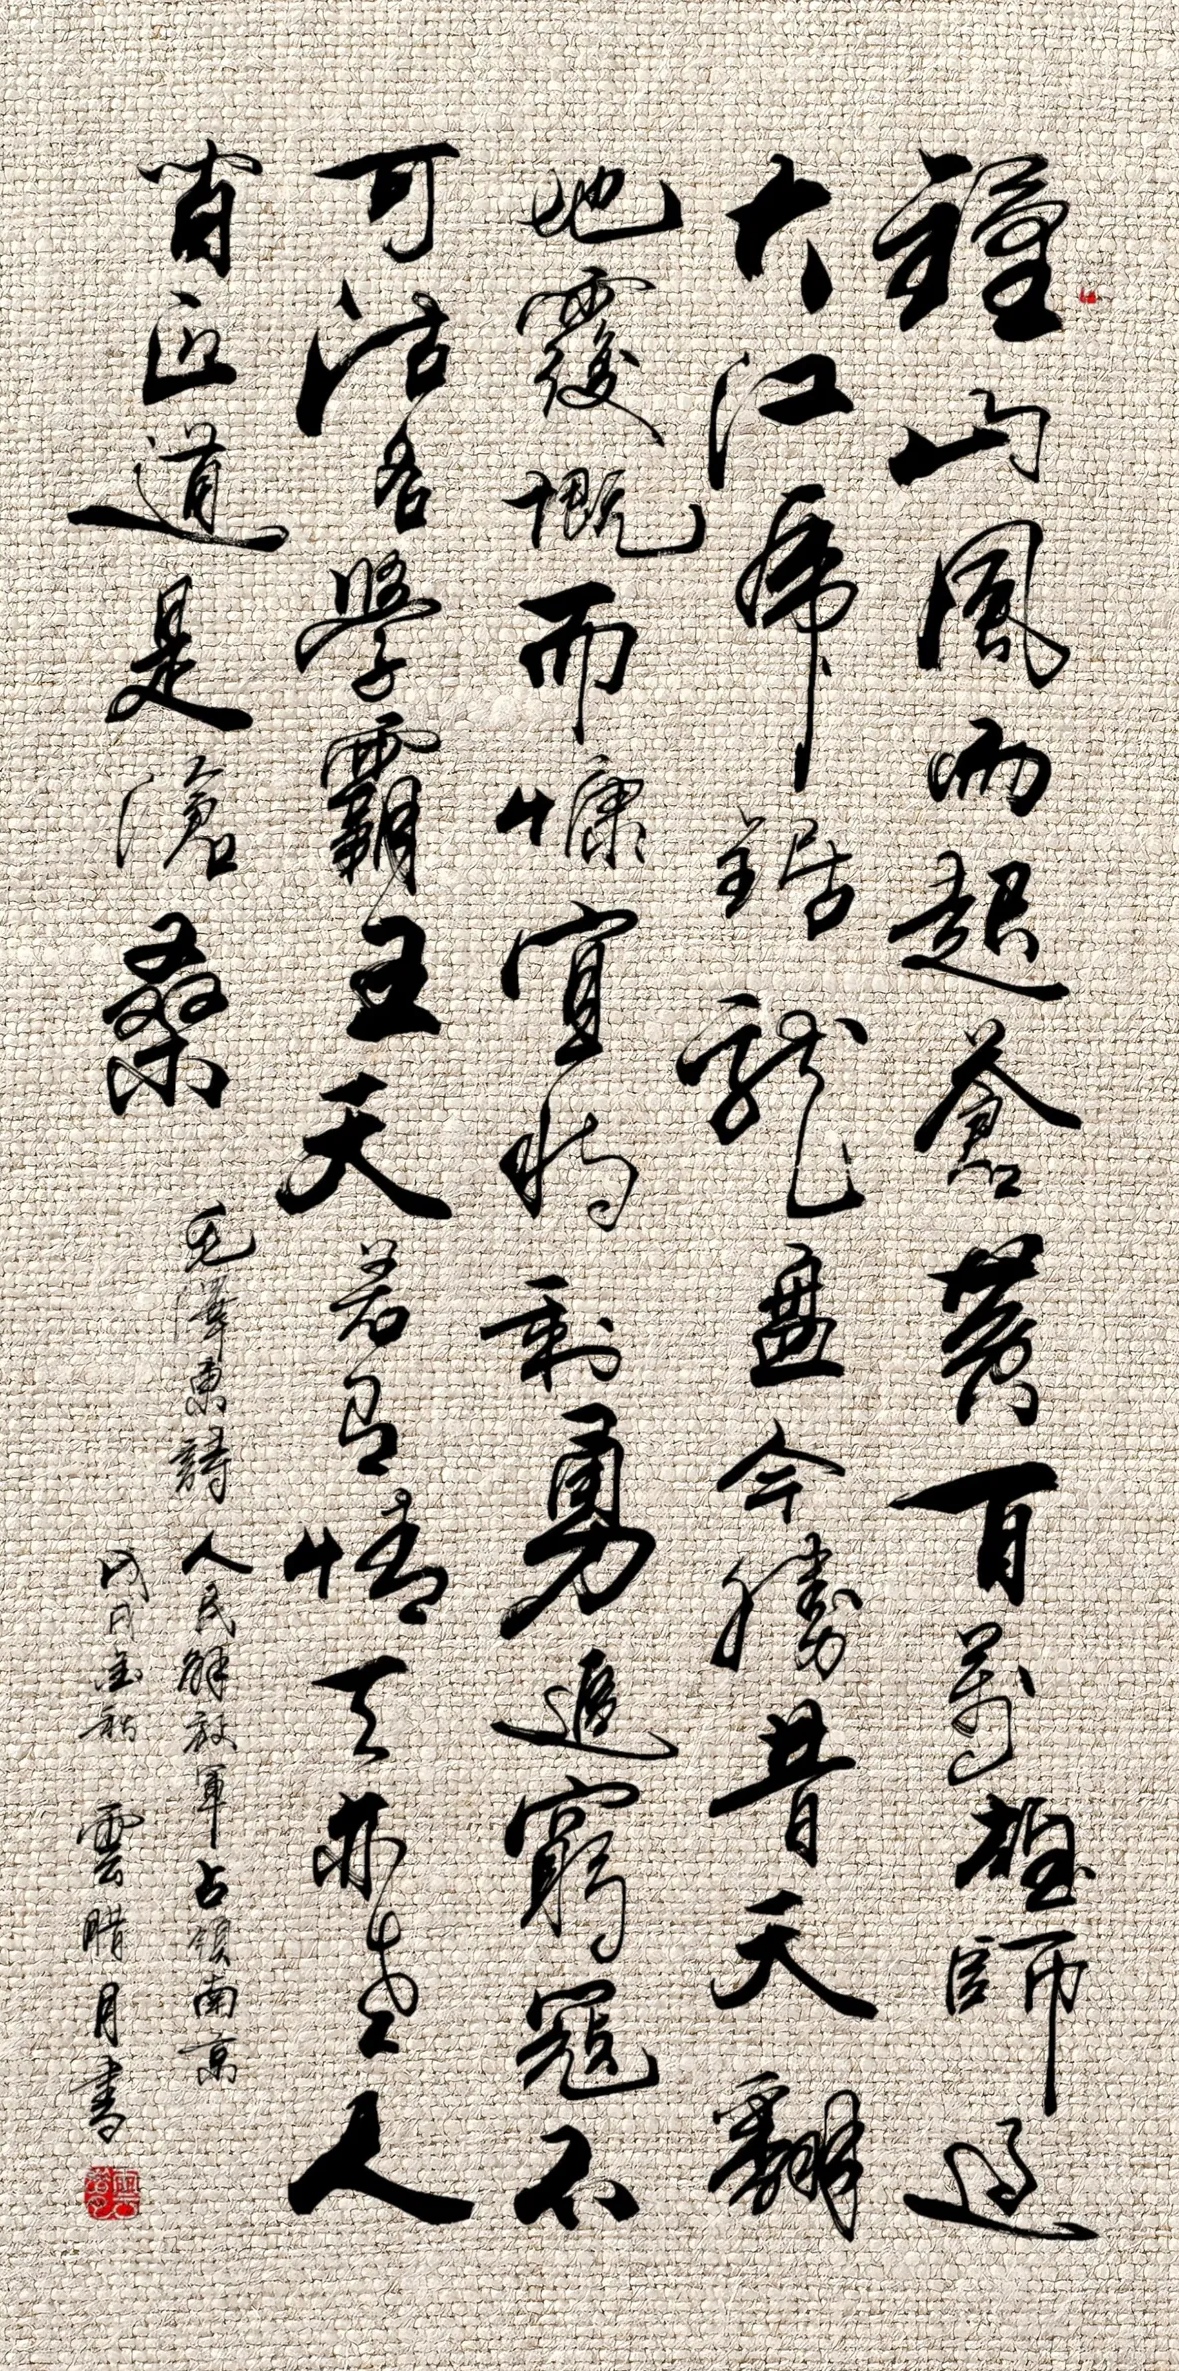 鍾山風雨起蒼黃百萬雄師過
大江虎踞龍盘今勝昔天翻
地覆慨而慷宜將剩勇追窮寇不
可沽名學霸王天若有情天亦老人
間正道是滄桑
毛澤東詩 人民解放軍占領南京
金秋 雲腊月書